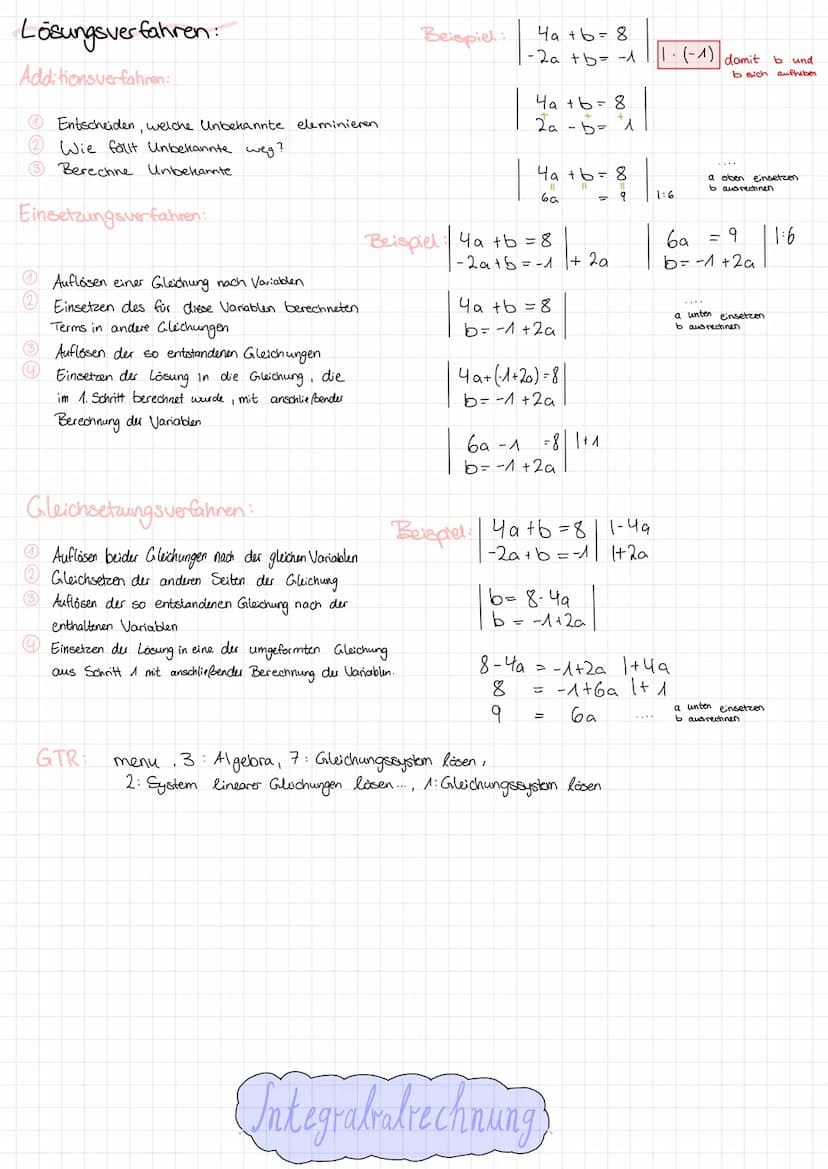 Lösungsverfahren:
Additionsverfahren:
① Entscheiden, welche Unbekannte eleminieren
② Wie fällt Unbekannte weg?
③ Berechne Unbekannte
Beispiel: | 4a + b = 8 |
| -2a + b = -1 | | · (-1) damit b und
b sich aufheben
| 4a + b = 8 |
+ + +
| 2a - b = 1 |
| 4a + b = 8 |
|| || ||
| 6a = 9 | |:6
....
a oben einsetzen
b ausrechnen
Einsetzungsverfahren:
① Auflösen einer Gleichung nach Variablen
② Einsetzen des für diese Variablen berechneten
Terms in andere Gleichungen
③ Auflösen der so entstandenen Gleichungen
④ Einsetzen der Lösung in die Gleichung, die
im 1. Schritt berechnet wurde, mit anschließender
Berechnung der Variablen
Beispiel: | 4a + b = 8 |
| -2a + b = -1 | + 2a
| 4a + b = 8 |
| b = -1 + 2a |
| 4a + (-1+2a) = 8 |
| b = -1 + 2a |
| 6a - 1 = 8 | |+1
| b = -1 + 2a |
| 6a = 9 | |:6
| b = -1 + 2a |
....
a unten einsetzen
b ausrechnen
Gleichsetzungsverfahren:
① Auflösen beider Gleichungen nach der gleichen Variablen
② Gleichsetzen der anderen Seiten der Gleichung
③ Auflösen der so entstandenen Gleichung nach der
enthaltenen Variablen
④ Einsetzen der Lösung in eine der umgeformten Gleichung
aus Schritt 1 mit anschließender Berechnung der Variablen.
Beispiel: | 4a + b = 8 | |-4a
| -2a + b = -1 | |+2a
| b = 8 - 4a |
| b = -1 + 2a |
8 - 4a = -1 + 2a |+4a
8 = -1 + 6a |+ 1
9 = 6a ....
a unten einsetzen
b ausrechnen
GTR: menu, 3: Algebra, 7: Gleichungssystem lösen,
2: System linearer Gleichungen lösen..., 1: Gleichungssystem lösen
Integralralrechnung